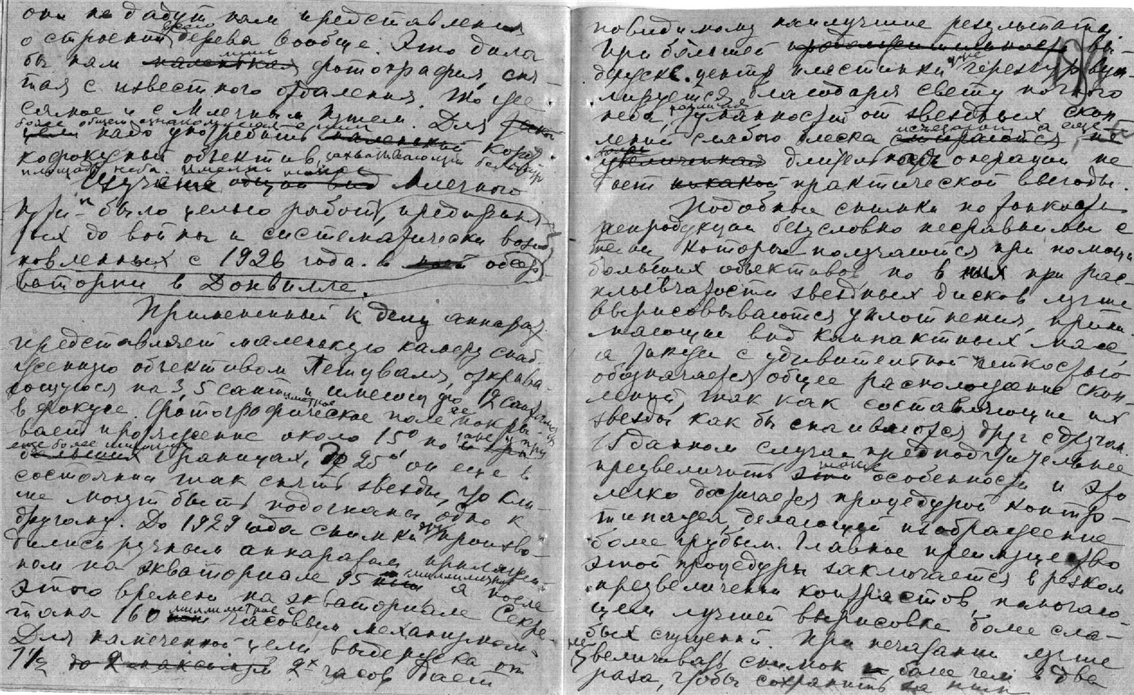 они не дадут нам представления
о строении этого дерева вообще. Это дала
бы нам фотография, сня-
тая с известного отдаления. То же
самое и с Млечным путем. Для
надо употребить корот-
кофокусный объектив, захватывающий большую
площадь неба.
Изучение Млечного
пути было целью работ, предприня-
тых до войны и систематически возоб-
новленных с 1926 года в обсер-
ватории в Донвилле.
Примененный к делу аппарат
представляет маленькую камеру, снаб-
женную объективом Петцваля, открыва-
ющуюся на 3,5 сантиметров и имеющую 12 сант.
в фокусе. Фотографическое поле покры-
вает протяжение около 15° но
еще более границах, до 25° он еще в
состоянии так снять звезды, что сни-
могут быть подогнаны одно к
другому. До 1929 года снимки эти произво-
дились ручным аппаратом прилажен-
ном на экваториале 95 миллиметров а после
этого времени на экваториале Секре-
тана 160 миллиметров с часовым механизмом.
Для намеченной цели выдержка от
1 1/2 до 2х часов дает
повидимому наилучшие результаты.
При большей вы-
держке центр пластинки чересчур вуа-
лируется, благодаря свету ночного
неба, туманности от звездных скоп-
лений слабого блеска исчезают а еще
длительная операция не
дает практической выгоды.
Подобные снимки по тонкости
репродукции безусловно несравнимы с
теми, которые получаются при помощи
больших объективов, но в них при рас-
плывчатости звездных дисков лучше
вырисовываются уплотнения, прини-
мающие вид компактных масс,
а также с удивительной четкостью
обозначается общее расположение скоп-
лений, так как составляющие их
звезды как бы спаиваются друг с другом.
В данном случае предпочтительнее
преувеличить такие особенности и это
легко достигается процедурой контр-
типажа, делающей изображение
более грубым. Главное преимущество
этой процедуры заключается в резком
преувеличении контрастов, помогаю-
щем лучшей вырисовке более сла-
бых сгущений. При печатании лучше
не увеличивать снимок более чем в два
раза, чтобы сохранить